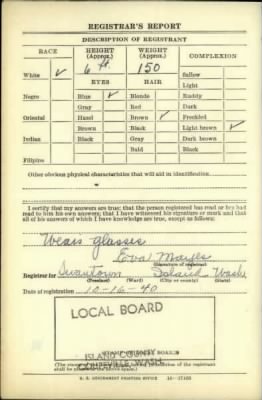 REGISTRAR'S REPORT
DESCRIPTION OF REGISTRANT
RACE HEIGHT (Approx.) WEIGHT (Approx.) COMPLEXION
White ✓ 6 ft. 150 Sallow
EYES HAIR Light
Negro Blue ✓ Blonde Ruddy
Gray Red Dark
Oriental Hazel Brown ✓ Freckled
Brown Black Light brown ✓
Indian Black Gray Dark brown
Bald Black
Filipino
Other obvious physical characteristics that will aid in identification
I certify that my answers are true; that the person registered has read or has had
read to him his own answers; that I have witnessed his signature or mark and that
all of his answers of which I have knowledge are true, except as follows:
Wears glasses
Eva Mayes
(Signature of registrar)
Registrar for Island Wash
(Precinct) (Ward) (City or county) (State)
Date of registration 10-16-40
LOCAL BOARD
ISLAND COUNTY
COUPEVILLE, WASH.
(The of the registrant
shall be above space.)
U. S. GOVERNMENT PRINTING OFFICE 16-17105